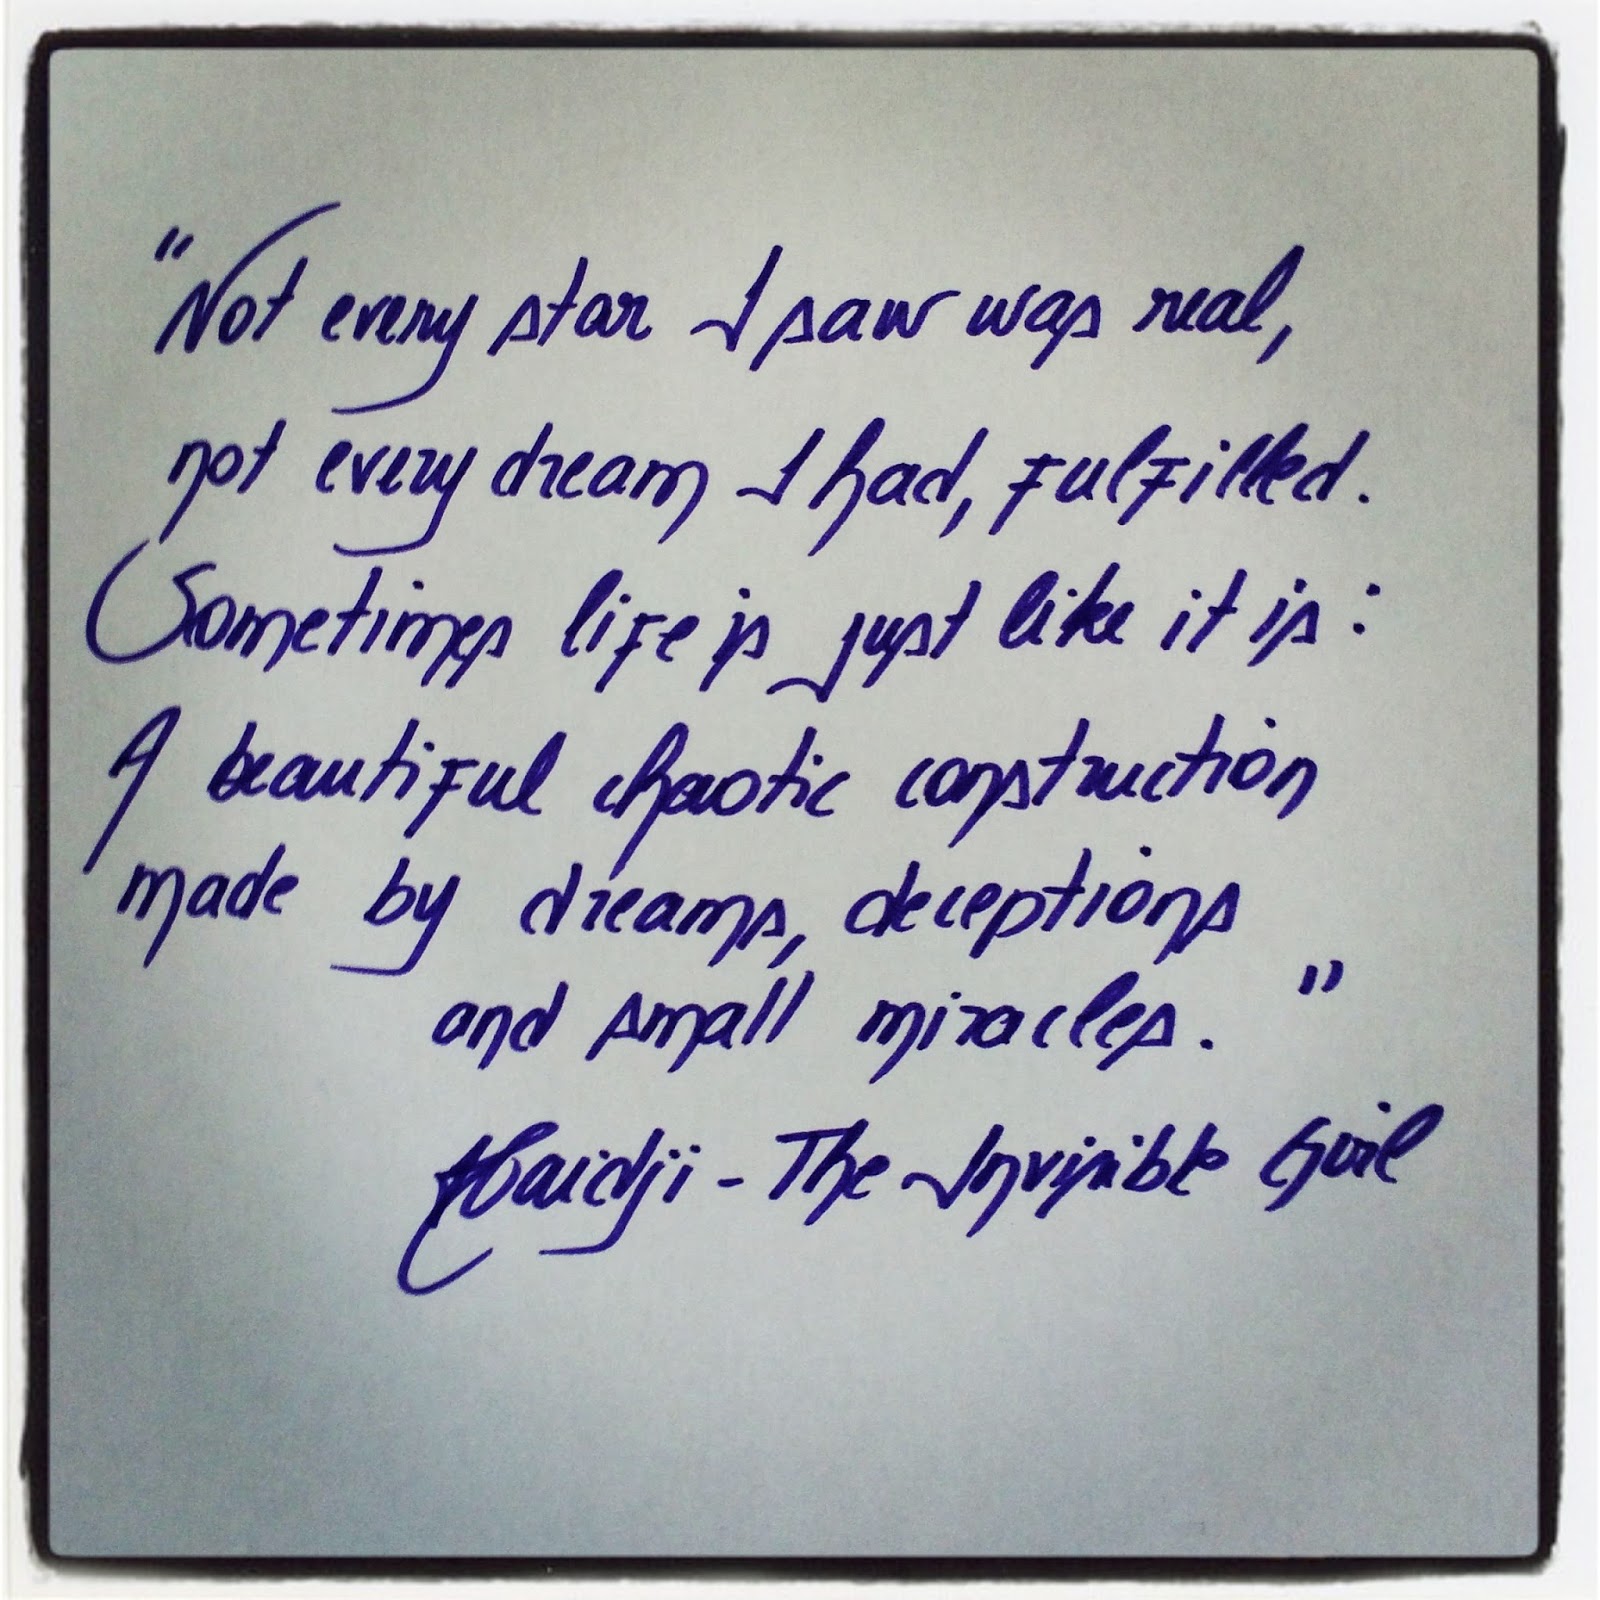 "Not every star I saw was real,
not every dream I had, fulfilled.
Sometimes life is just like it is:
A beautiful chaotic construction
made by dreams, deceptions
and small miracles."
Haidji - The Invisible Girl